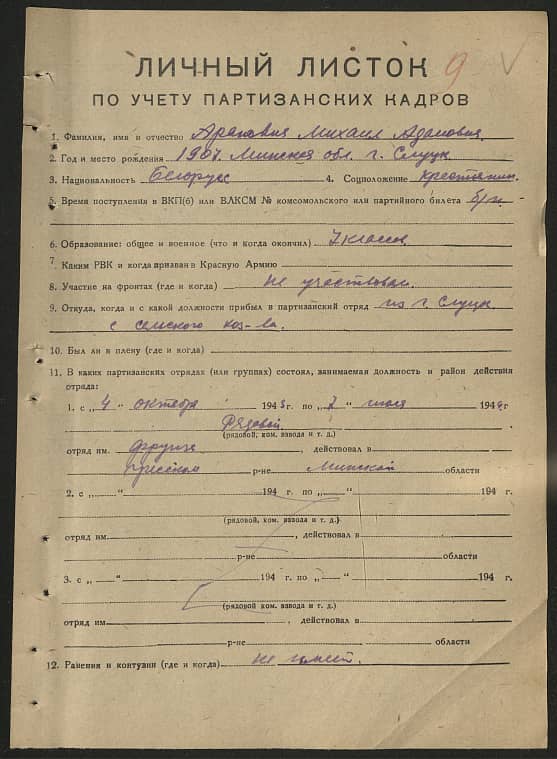 9
ЛИЧНЫЙ ЛИСТОК
ПО УЧЕТУ ПАРТИЗАНСКИХ КАДРОВ
1. Фамилия, имя и отчество Арапович Михаил Адамович
2. Год и место рождения 1907. Минская обл. г. Слуцк
3. Национальность Белорус 4. Соцположение крестьянин.
5. Время поступления в ВКП(б) или ВЛКСМ № комсомольского или партийного билета б/п.
6. Образование: общее и военное (что и когда окончил) 7 классов
7. Каким РВК и когда призван в Красную Армию
8. Участие на фронтах (где и когда) не участвовал.
9. Откуда, когда и с какой должности прибыл в партизанский отряд из г. Слуцк
с сельского хоз-ва.
10. Был ли в плену (где и когда)
11. В каких партизанских отрядах (или группах) состоял, занимаемая должность и район действия
отряда:
1. с „4" октября 1943 г. по „7" июля 1944 г
Рядовой
(рядовой, ком. взвода и т. д.)
отряд им. Фрунзе, действовал в
р-не Минской области
2. с „ " 194 г. по „ " 194 г.
(рядовой, ком. взвода и т. д.)
отряд им. , действовал в
р-не области
3. с „ " 194 г. по „ " 194 г.
(рядовой ком. взвода и т. д.)
отряд им. , действовал в
р-не области
12. Ранения и контузии (где и когда) не имеет.